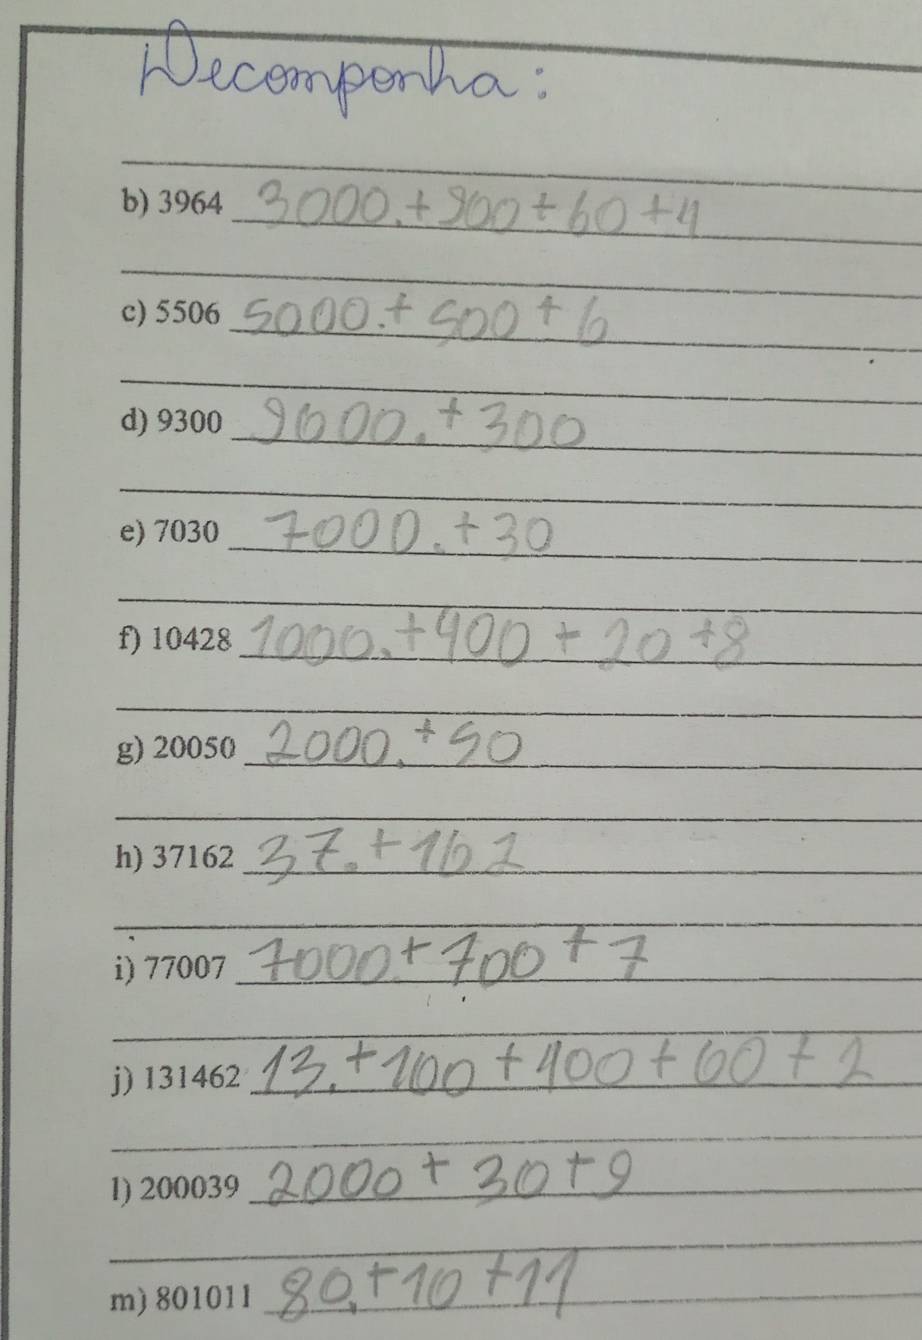 Decomponha:
b) 3964 3000.+900+60+4
c) 5506 5000.+500+6
d) 9300 9000.+300
e) 7030 7000.+30
f) 10428 1000.+400+20+8
g) 20050 2000.+50
h) 37162 37.+162
i) 77007 7000+700+7
j) 131462 13.+100+400+60+2
l) 200039 2000+30+9
m) 801011 80.+10+11